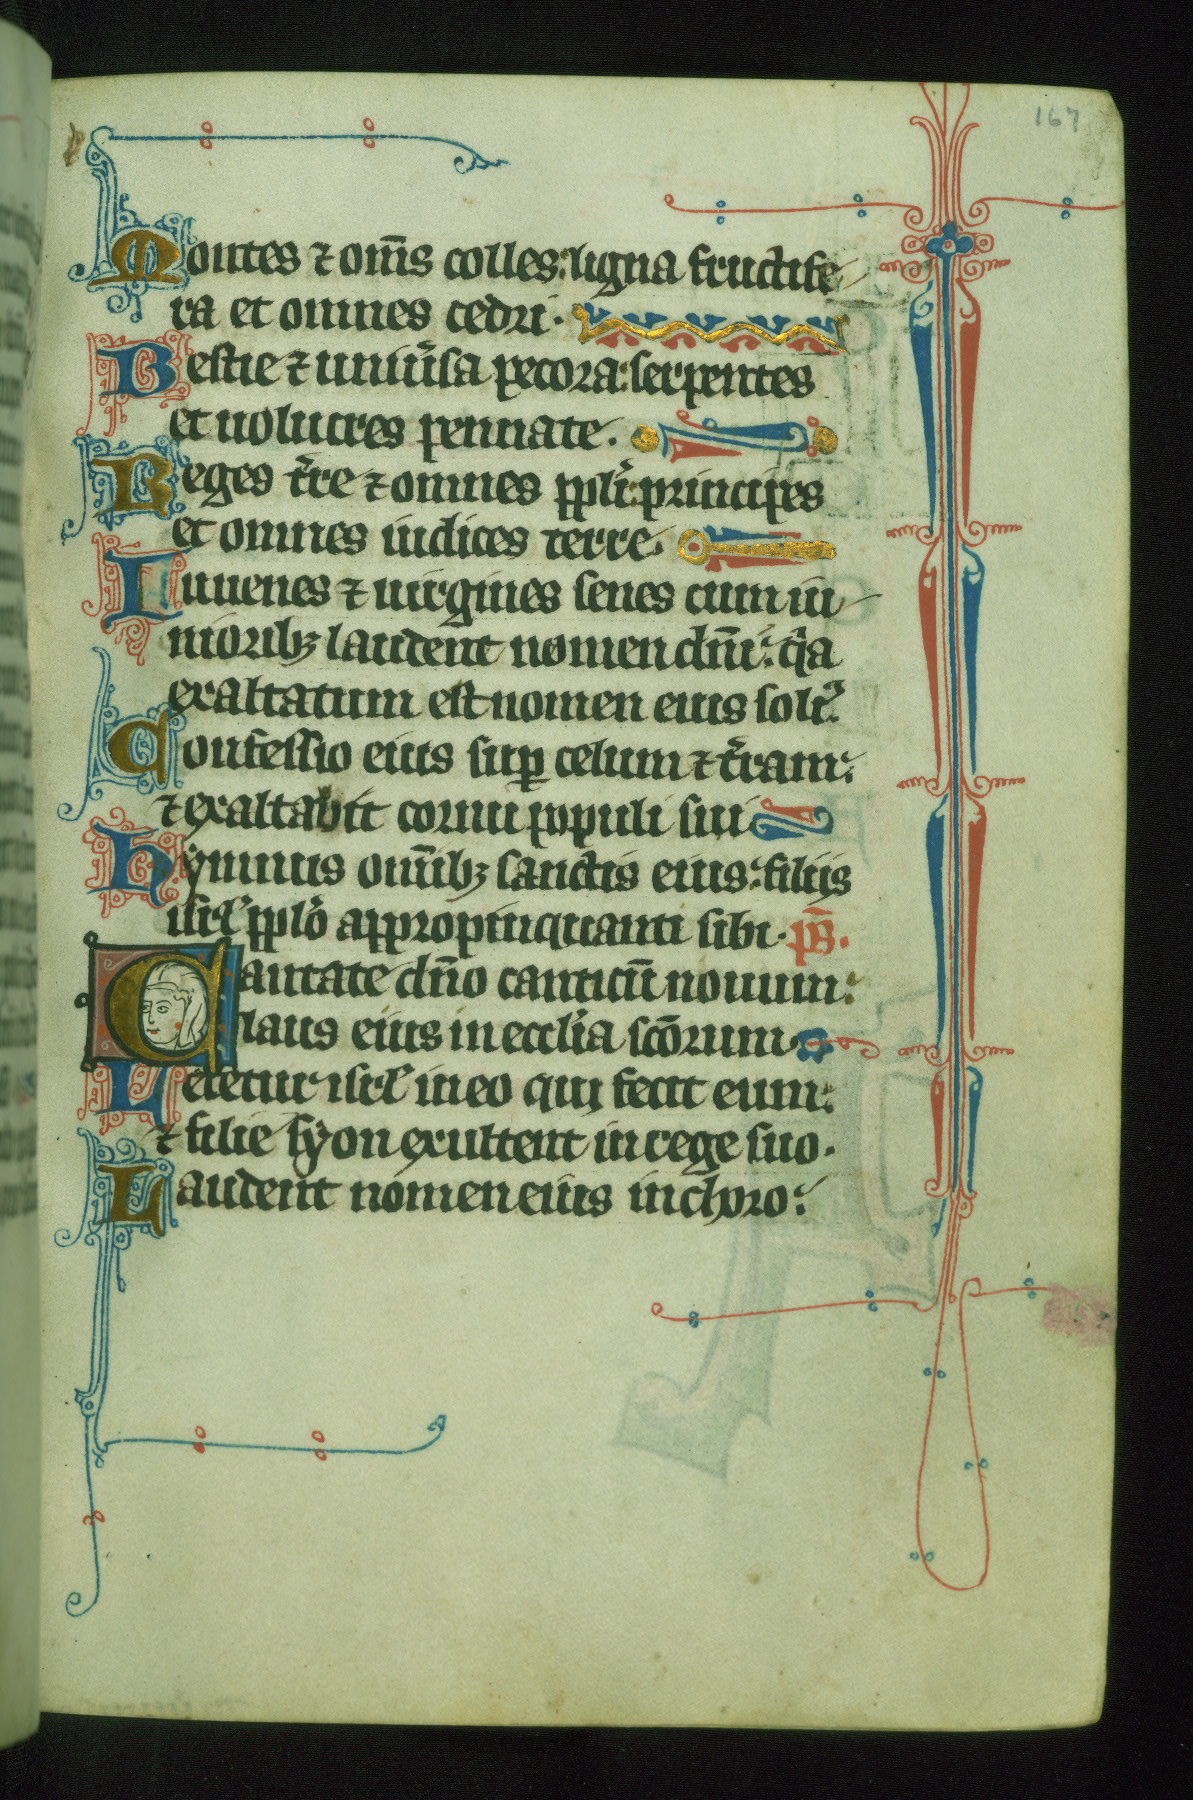 167
Montes ⁊ om̄s colles: ligna fructife
ra et omnes cedri.
Bestie ⁊ uniu̓sa pecora: serpentes
et uolucres pennate.
Reges t̓re ⁊ omnes ppl̓i: principes
et omnes iudices terre.
Iuuenes ⁊ uirgines senes cum iu
nioribꝫ laudent nomen dn̄i: q̓a
exaltatum est nomen eius soli᷒.
Confessio eius suꝑ celum ⁊ t̓ram:
⁊ exaltabit cornu populi sui
Hymnus om̄ibꝫ sanctis eius: filiis
isrl̓ ppl̓o appropinquanti sibi. ps̄.
Cantate dn̄o canticū nouum:
laus eius in eccl̓ia sc̄orum.
Letetur isrl̓ in eo qui fecit eum:
⁊ filie syon exultent in rege suo.
Laudent nomen eius in choro: